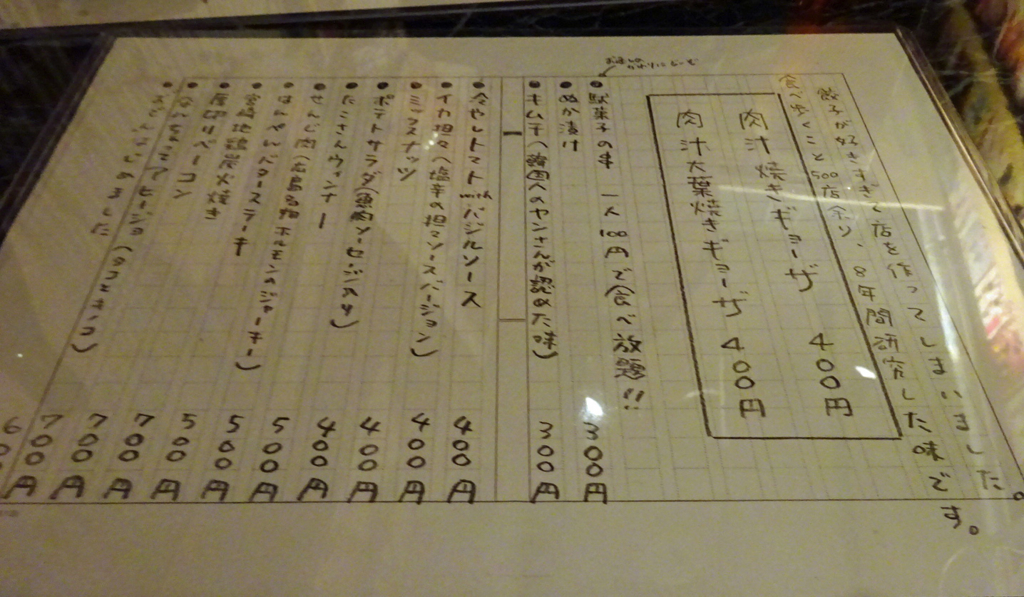 餃子が好きすぎて店を作ってしまいました。
食べ歩くこと500店余り、8年間研究した味です。
肉汁焼きギョーザ 400円
肉汁大葉焼きギョーザ 400円
駄菓子の串 一人100円で食べ放題!!
ぬか漬け 300円
キムチ(韓国人のヤンさんが認めた味) 300円
冷やしトマトwithバジルソース 400円
イカ担々(塩辛の担々ソースバージョン) 400円
ミックスナッツ 400円
ポテトサラダ(魚肉ソーセージ入り) 400円
たこさんウィンナー 500円
せんじ肉(広島名物ホルモンジャーキー) 500円
はんぺんバターステーキ 500円
宮崎地鶏炭火焼き 700円
厚切りベーコン 700円